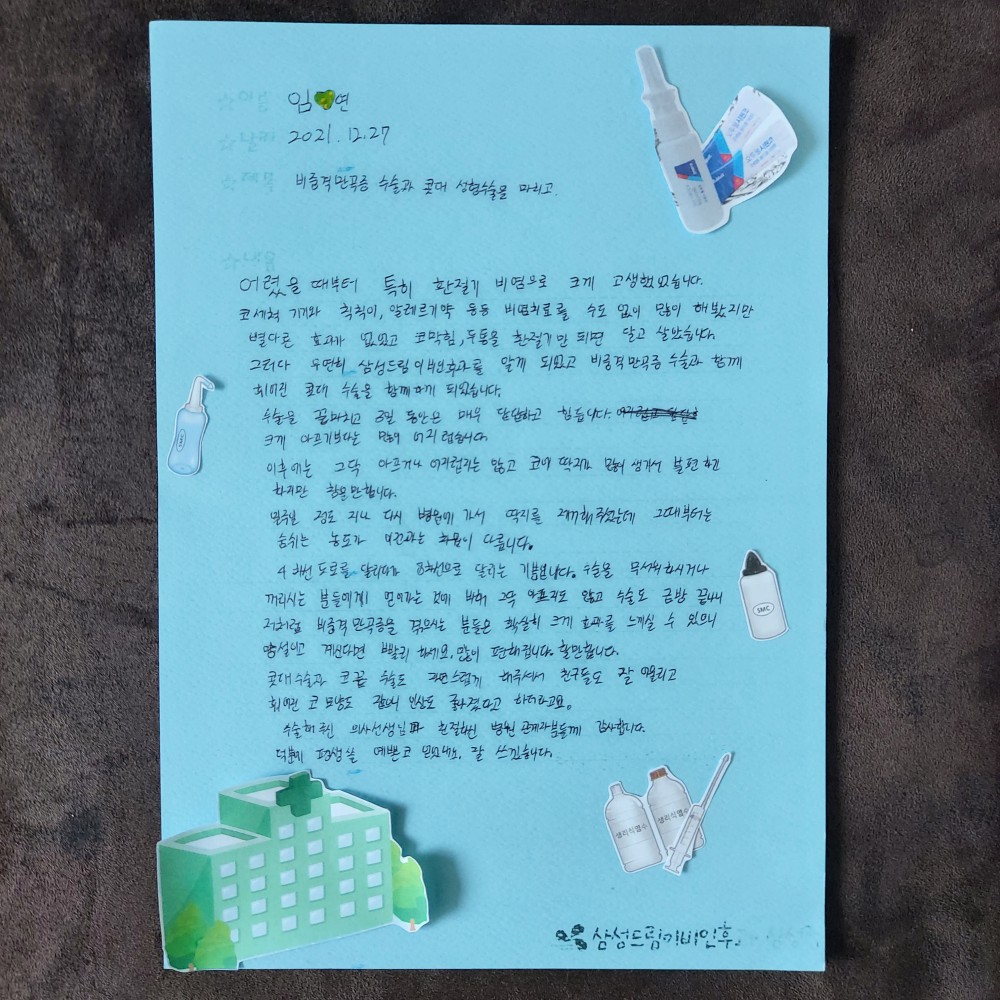 임 연
2021.12.27
비중격만곡증 수술과 콧대 성형수술을 마치고.
어렸을 때부터 특히 환절기 비염으로 크게 고생했었습니다.
코세척 기기와 칙칙이, 알레르기약 등등 비염치료를 수도 없이 많이 해봤지만
별다른 효과가 없었고 코막힘, 두통을 환절기만 되면 달고 살았습니다.
그러다 우연히 삼성드림이비인후과를 알게 되었고 비중격만곡증 수술과 함께
휘어진 콧대 수술을 함께하게 되었습니다.
수술을 끝마치고 3일 동안은 매우 답답하고 힘듭니다.
크게 아프기보다는 많이 어지럽습니다.
이후에는 그닥 아프거나 어지럽지는 않고 코에 딱지가 많이 생겨서 불편하긴
하지만 참을만합니다.
일주일 정도 지나 다시 병원에 가서 딱지를 제거해주셨는데 그때부터는
숨쉬는 농도가 이전과는 차원이 다릅니다.
4차선 도로를 달리다가 8차선으로 달리는 기분입니다. 수술을 무서워하시거나
꺼리시는 분들에게 얻어가는 것에 비해 그닥 아프지도 않고 수술도 금방 끝나니
저처럼 비중격만곡증을 겪으시는 분들은 확실히 크게 효과를 느끼실 수 있으니
망설이고 계신다면 빨리 하세요. 많이 편해집니다. 할만합니다.
콧대수술과 코끝 수술도 자연스럽게 해주셔서 친구들도 잘 어울리고
휘어진 코 모양도 잡혀서 인상도 좋아졌다고 하더라고요.
수술해주신 의사선생님과 친절하신 병원 관계자분들께 감사합니다.
덕분에 평생 쓸 예쁜코 얻었네요. 잘 쓰겠습니다.
SMC
생리식염수
생리식염수
삼성드림이비인후